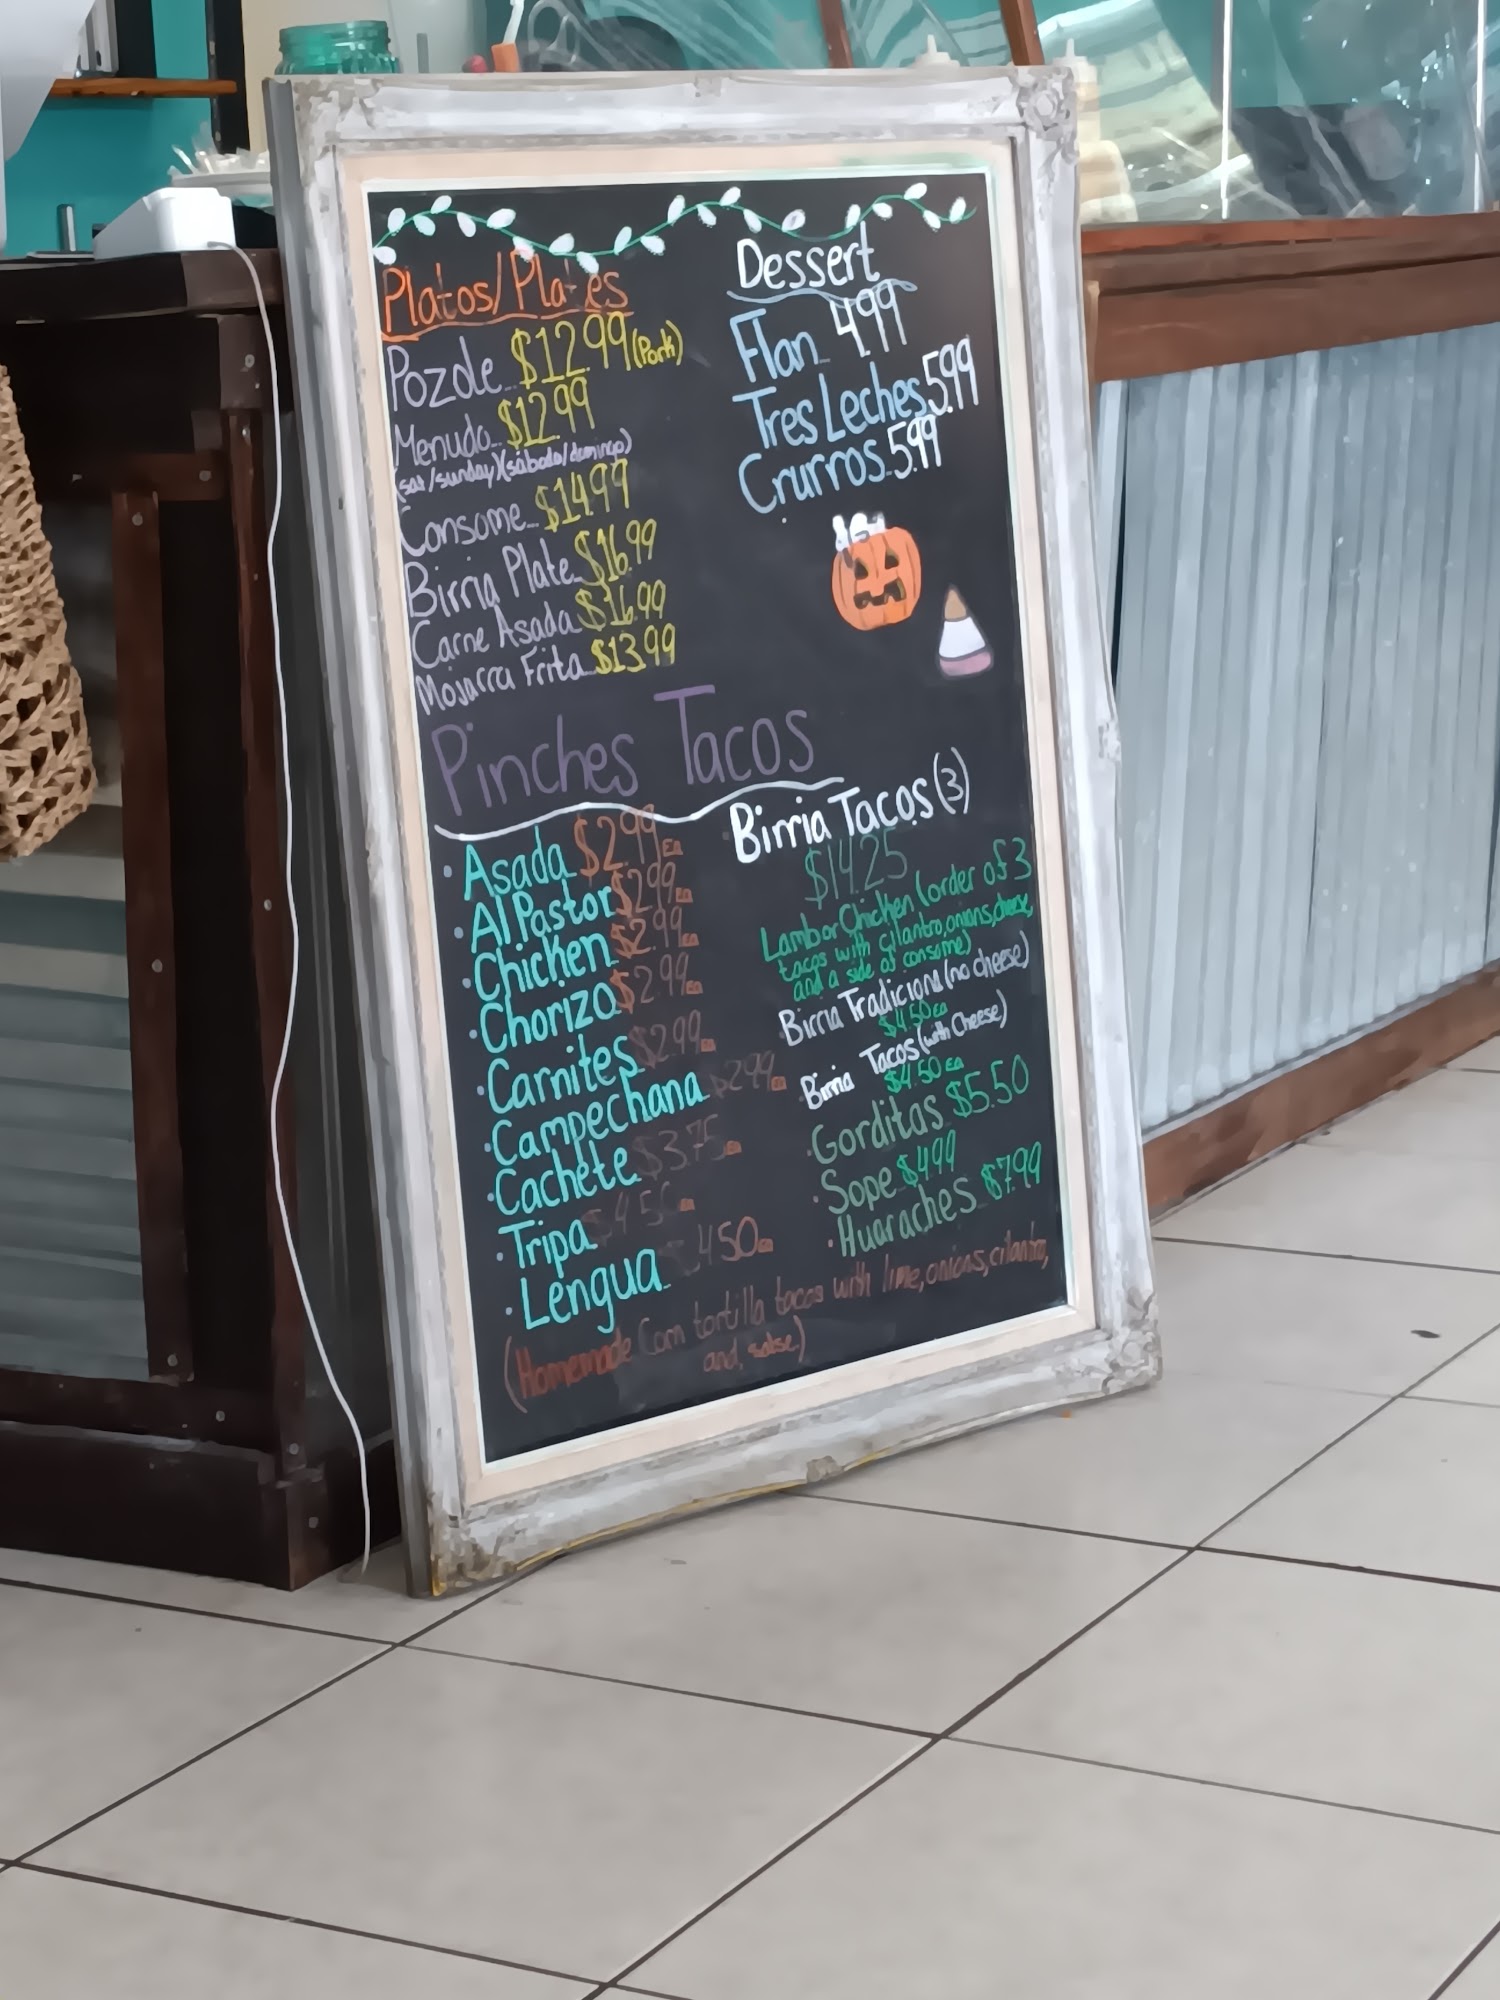 Platos/Plates
Pozole $12.99 (Pork)
Menudo $12.99
(sat/sunday)(sábado/domingo)
Consome $14.99
Birria Plate $16.99
Carne Asada $16.99
Mojarra Frita $13.99
Dessert
Flan 4.99
Tres Leches 5.99
Crurros 5.99
Pinches Tacos
Asada $2.99 Ea
Al Pastor $2.99 Ea
Chicken $2.99 Ea
Chorizo $2.99 Ea
Carnites $2.99 Ea
Campechana $2.99 Ea
Cachete $3.75 Ea
Tripa $4.50 Ea
Lengua $4.50 Ea
Birria Tacos (3)
$14.25
Lamb or Chicken (order of 3
tacos with cilantro, onions, cheese,
and a side of consome)
Birria Tradiciona (no cheese)
$4.50 ea
Birria Tacos (with Cheese)
$4.50 Ea
Gorditas $5.50
Sope $4.99
Huaraches $7.99
(Homemade Corn tortilla tacos with lime, onions, cilantro,
and, salse)